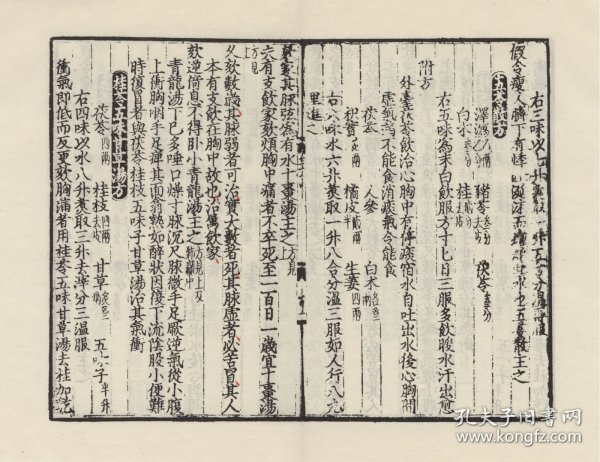 右三味以水
假令瘦人臍下有悸
五苓散方
澤瀉 猪苓 茯苓
白朮 桂
右五味為末白飲服方寸七日三服多飲暖水汗出愈
附方
外臺茯苓飲治心胸中有停痰宿水自吐出水後心胸間
虛氣滿不能食消痰氣令能食
茯苓 人參 白朮
枳實 橘皮 生姜
右六味水六升煑取一升八合分溫三服如人行八九
里進之
欬家其脉弦為有水十棗湯主之
夫有支飲家欬煩胸中痛者不卒死至一百日一歲宜十棗湯
久欬數歲其脉弱者可治實大數者死其脉虛者必苦冒其人
本有支飲在胸中故也治屬飲家
欬逆倚息不得臥小青龍湯主之
青龍湯下已多唾口燥寸脉沉尺脉微手足厥逆氣從小腹
上衝胸咽手足痺其面翕熱如醉狀因復下流陰股小便難
時復冒者與茯苓桂枝五味子甘草湯治其氣衝
桂苓五味甘草湯方
茯苓四兩 桂枝四兩 甘草 五味子半升
右四味以水八升煑取三升去滓分三溫服
衝氣即低而反更欬胸滿者用桂苓五味甘草湯去桂加
孔夫子旧书网
www.kongfz.com